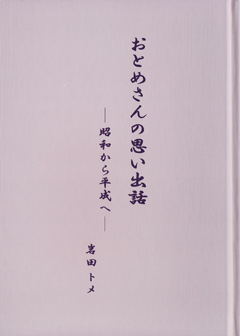 おとめさんの思い出話
―昭和から平成へ―
岩田トメ